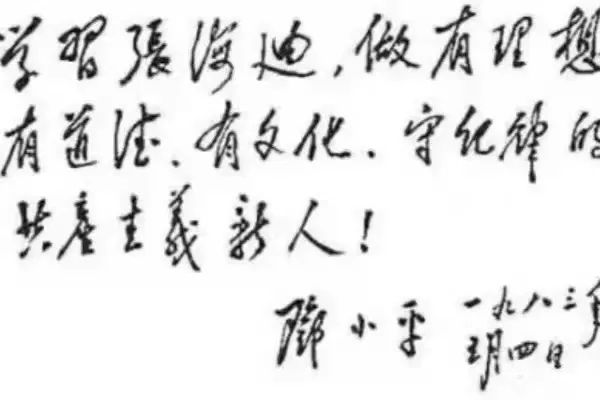 学習張海迪，做有理想
有道德、有文化、守纪律的
共產主義新人！
鄧小平 一九八三年
五月四日